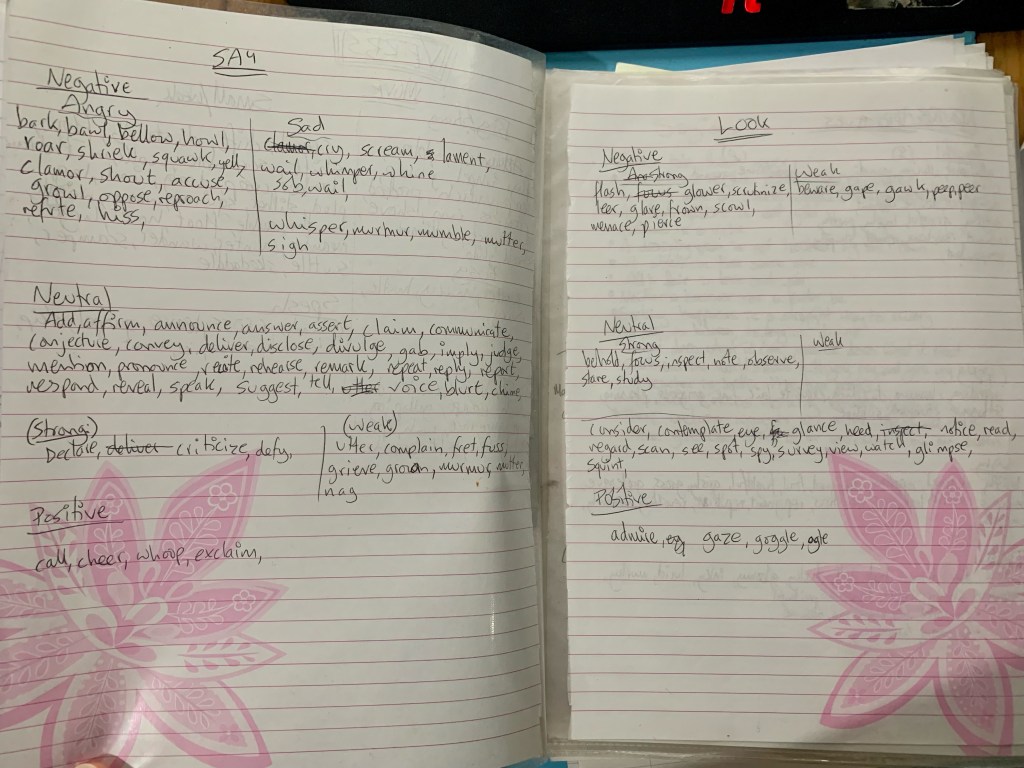 SAY
Negative
Angry
bark, bawl, bellow, howl,
roar, shriek, squawk, yell,
clamor, shout, accuse,
growl, oppose, reproach,
refute, hiss,
Sad
clamor, cry, scream, lament,
wail, whimper, whine
sob, wail
whisper, murmur, mumble, mutter,
sigh
Neutral
Add, affirm, announce, answer, assert, claim, communicate,
conjecture, convey, deliver, disclose, divulge, gab, imply, judge,
mention, pronounce, recite, rehearse, remark, repeat, reply, report,
respond, reveal, speak, suggest, tell, utter voice, blurt, chime,
(Strong)
Declare, deliver criticize, defy,
(Weak)
utter, complain, fret, fuss,
grieve, groan, murmur, mutter,
nag
Positive
call, cheer, whoop, exclaim,
Look
Negative
strong
flash, focus glower, scrutinize,
leer, glare, frown, scowl,
menace, pierce
Weak
beware, gape, gawk, peep, peer
Neutral
strong
behold, focus, inspect, note, observe,
stare, study
weak
consider, contemplate, eye, glance, heed, inspect, notice, read,
regard, scan, see, spot, spy, survey, view, watch, glimpse,
squint,
Positive
admire, gaze, goggle, ogle